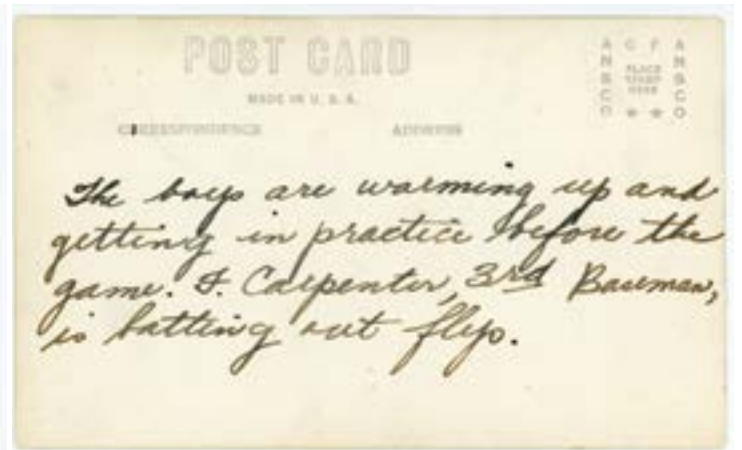 POST CARD
MADE IN U. S. A.
CORRESPONDENCE ADDRESS
ANSCO
PLACE
STAMP
HERE
ANSCO
The boys are warming up and
getting in practice before the
game. F. Carpenter, 3rd Baseman,
is batting out flys.